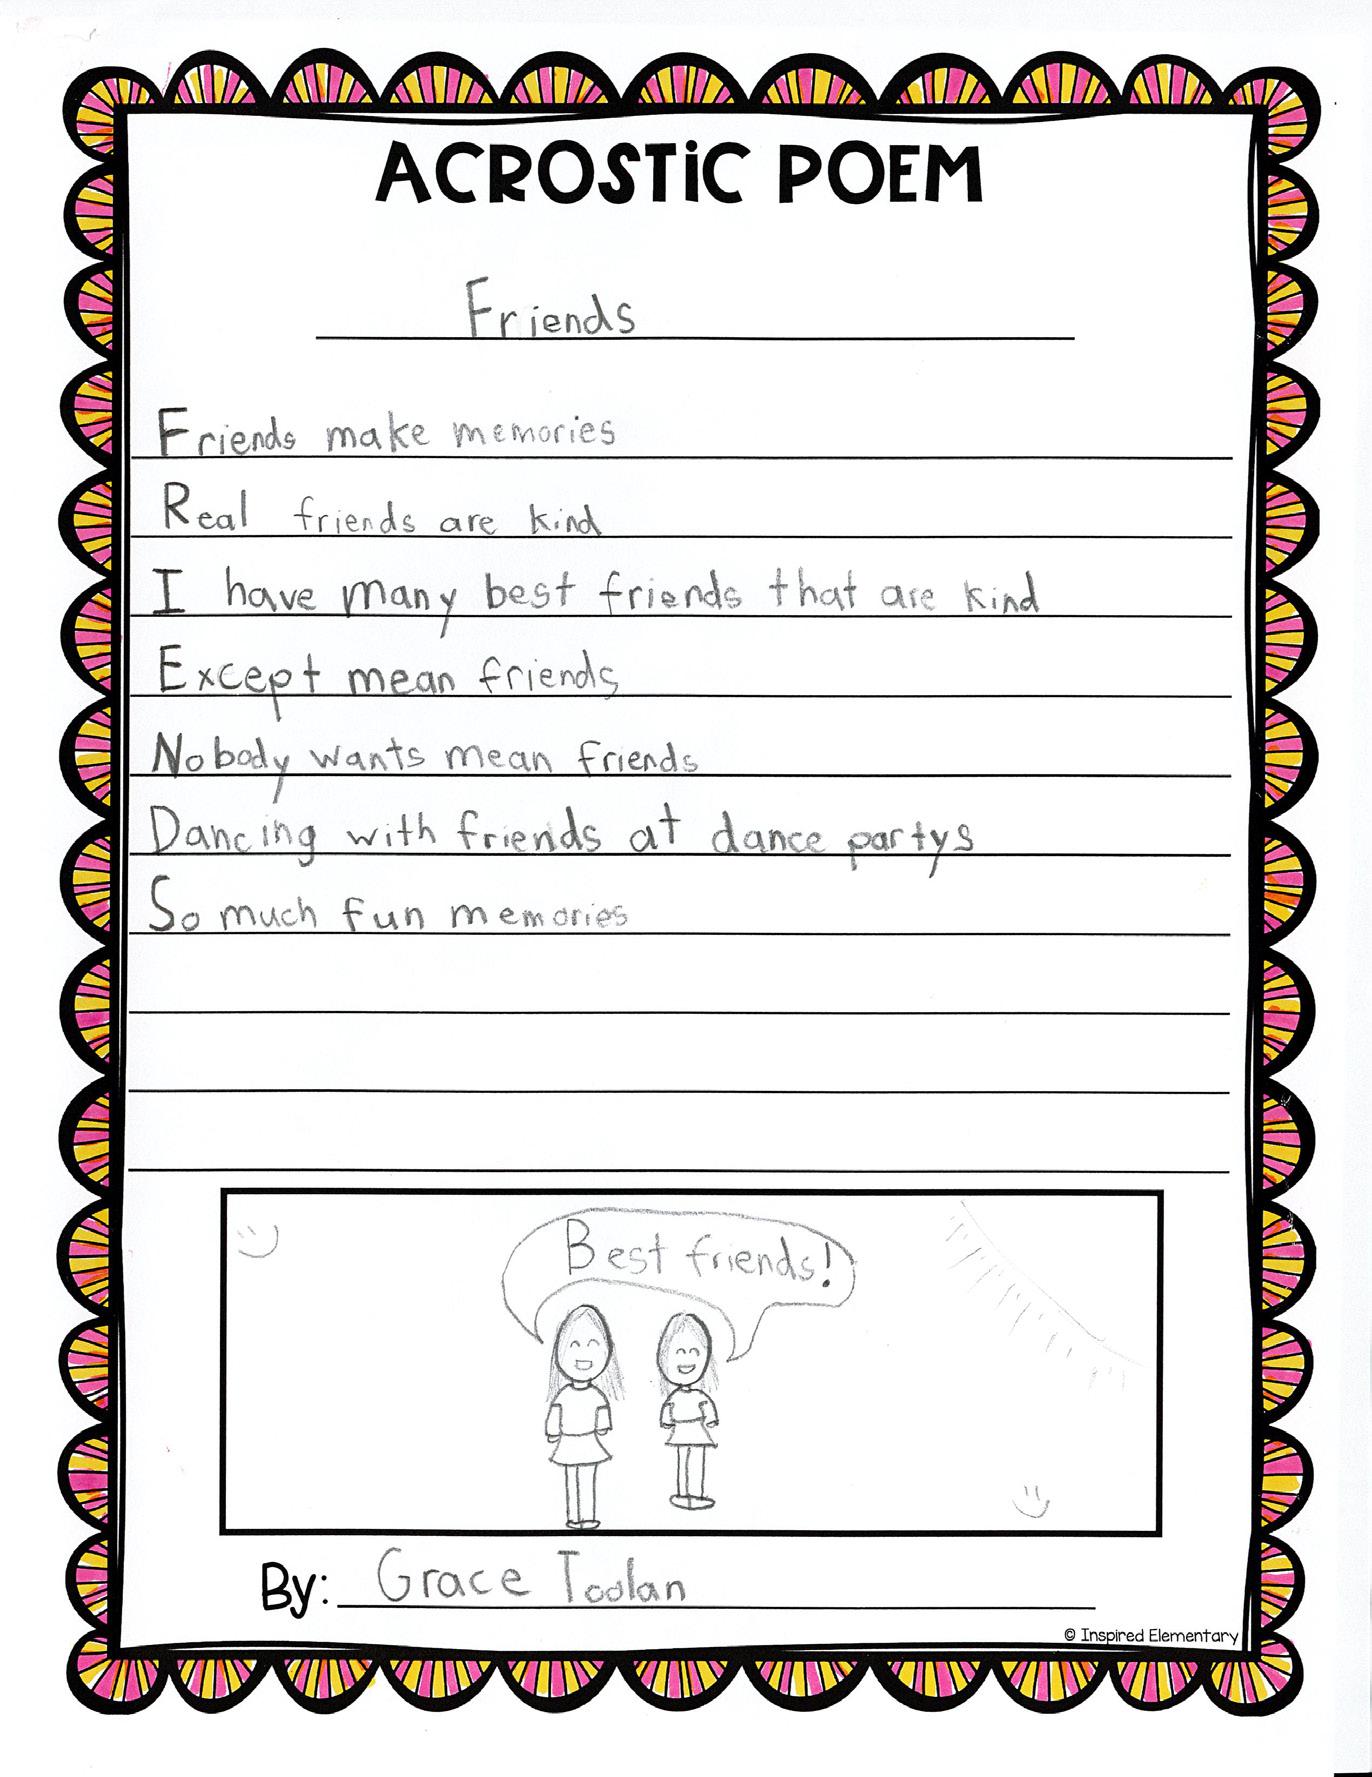 ACROSTiC POEM
Friends
Friends make memories
Real friends are kind
I have many best friends that are kind
Except mean friends
Nobody wants mean friends
Dancing with friends at dance partys
So much fun memories
Best friends!
By: Grace Toolan
© Inspired Elementary